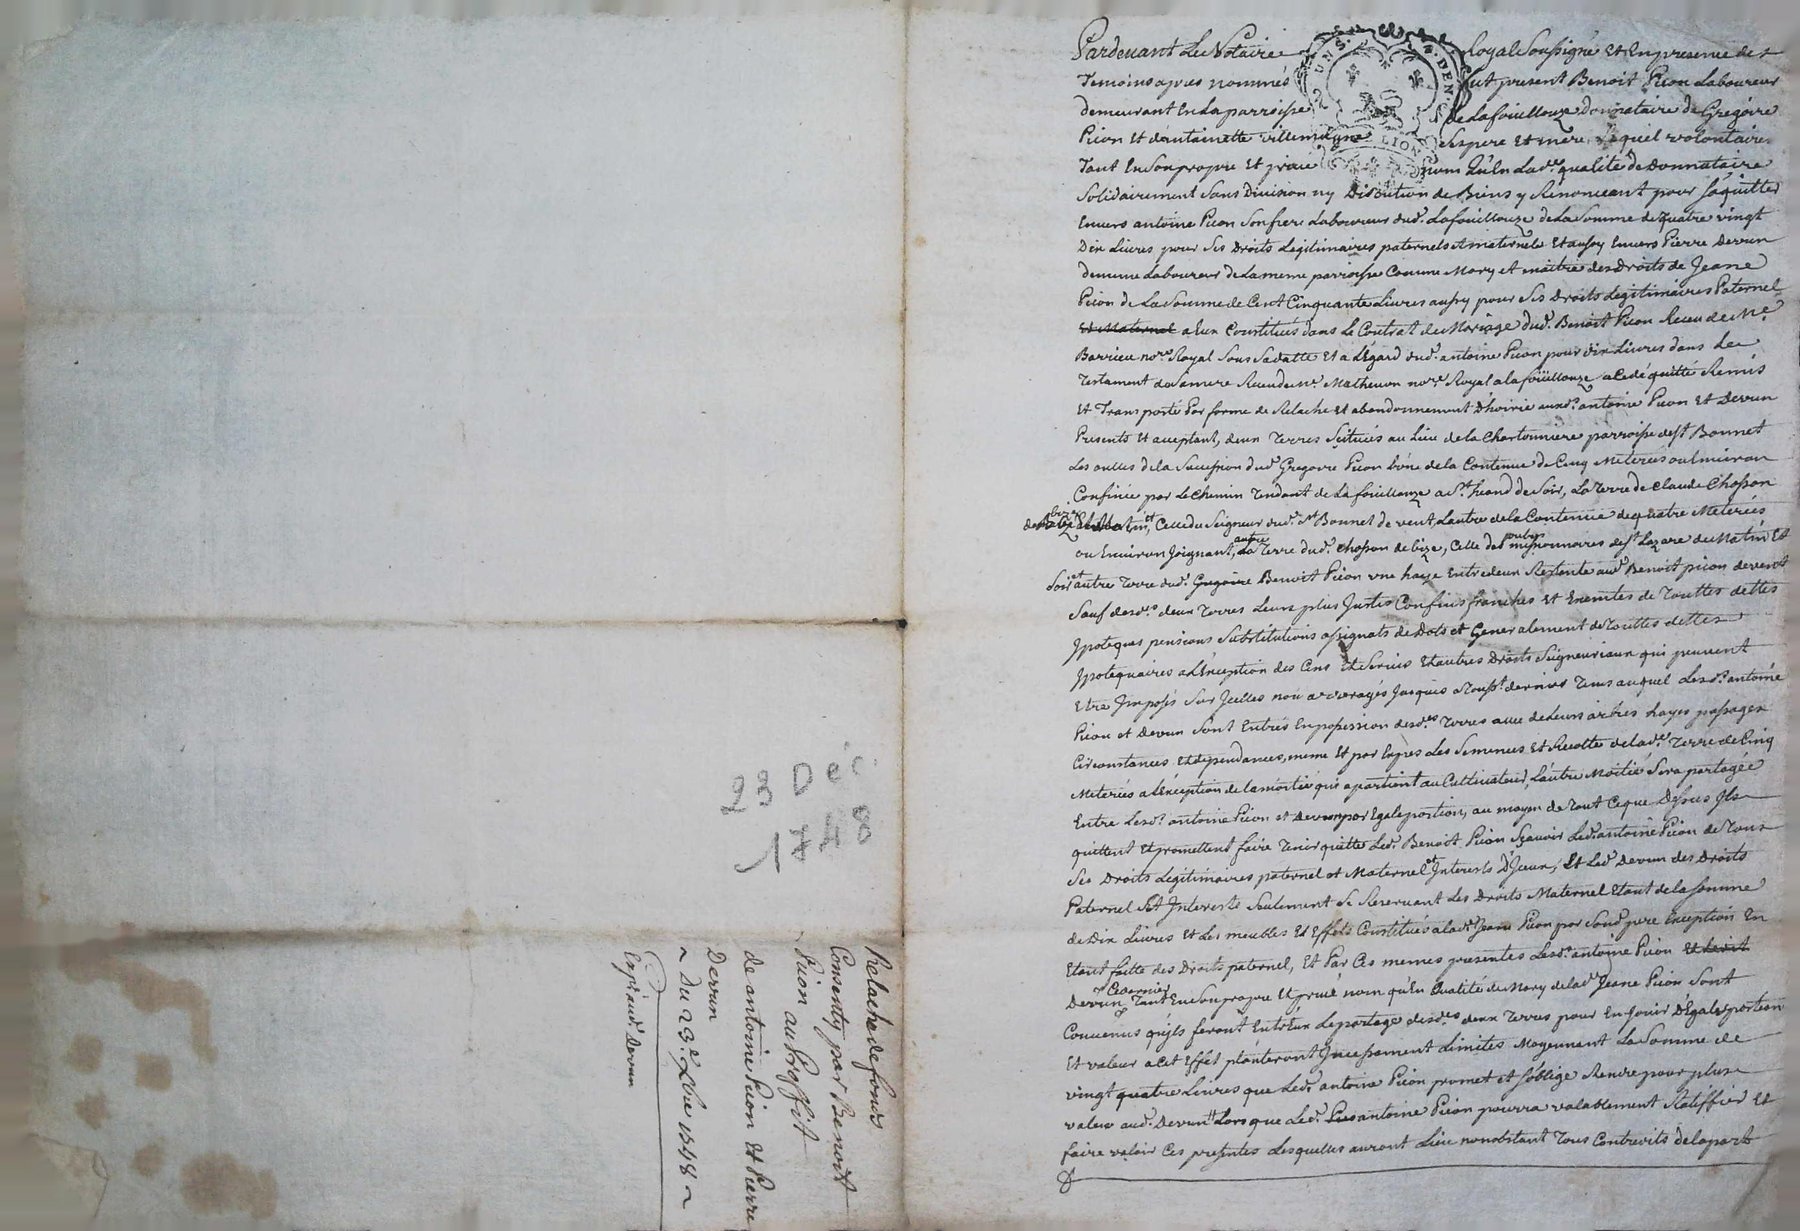 Pardevant Le Notaire Royal Soussigné Et En presence des
Temoins apres nommés fut present Benoit Picon Laboureur
demeurant En La parroisse de Lafouillouze donnataire de Gregoire
Picon Et d'antoinette villemagne ses pere Et mere, Lequel volontaire
Tant En Son propre Et privé nom Qu'En Lad.e qualité de Donnataire
Solidairement Sans Division ny Discution de Biens y Renonceant pour s'aquitter
Envers antoine Picon Son frere Laboureur dud. Lafouillouze de La Somme de quatre vingt
Dix Livres pour Ses Droits Legitimaires paternels et maternels Et aussy Envers Pierre Devrun
dememe Laboureur de La meme parroisse Comme Mary et maitre des Droits de Jeane
Picon de La Somme de Cent Cinquante Livres aussy pour Ses Droits Legitimaires Paternel
Et Maternel a Eux Constitués dans Le Contrat de Mariage dud. Benoit Picon Receu de Me.
Barrieu nore. Royal Sous Sa datte Et a L'Egard dud. antoine Picon pour dix Livres dans Le
Testament de Sa mere Receu de me. Matheuon nore. Royal a la fouillouze a Cedé quitté Remis
Et Transporté Par forme de Relache Et abandonnement d'hoirie auxd. antoine Picon Et Devrun
Presents Et acceptant, deux Terres Scituées au Lieu de la Chartonniere parroisse de St Bonnet
Les oulles de la Succession dud. Gregoire Picon L'une de la Contenue de Cinq Meterées ou Environ
Confinée par Le Chemin Tendant de Lafouillouze a St. heand de Soir, La Terre de Claude Chosson
de bize et Matin, et Celle du Seigneur dud. St Bonnet de vent, L'autre de la Contenue de quatre Meterées
ou Environ Joignant, autre Terre dud. Chosson de bize, Celle des missionnaires de St Lazare de Matin Et
Soir et autre Terre dud. Gregoire Benoit Picon une haye Entredeux Restante aud. Benoit picon de vent
Sauf desd.es deux Terres Leurs plus Justes Confins franches Et Exemtes de Touttes dettes
Ipoteques pensions Substitutions assignats de Dots et Generalement de Touttes dettes
Ipotequaires a L'Exception des Cens Et Servis Et autres Droits Seigneuriaux qui peuvent
Etre Imposés Sur Icelles non arreragés Jusques a Tousst. dernier Tems auquel Lesd. antoine
Picon et Devrun Sont Entrés En possession desd.es Terres avec de Leurs arbres hayes passages
Circonstances Et dependances, meme Et par Exprés Les Semences Et Recolte de lad.e Terre de Cinq
Meterées a L'Exception de la moitié qui apartient au Cultivateur, L'autre Moitié Sera partagée
Entre Lesd. antoine Picon et devrun par Egale portion, au moyen de Tout Ceque Dessus Ils
quittent Et promettent faire Tenir quitte Led. Benoit Picon Sçavoir Led. antoine Picon de Tous
Ses Droits Legitimaires paternel et Maternel et Interests D'Iceux, Et Led. Devrun des Droits
Paternel Et Interests Seulement Se Reservant Les Droits Maternel Etant de la Somme
de Dix Livres Et Les meubles Et Effets Constitués a lad. Jeane Picon par Sond. pere Exception En
Etant faitte des Droits paternel, Et Par Ces memes presentes Lesd. antoine Picon
Devrun Ce dernier Tant En Son propre Et privé nom qu'En qualité de Mary de lad. Jeane Picon Sont
Convenus qu'ils feront Entr'Eux Le partage desd.es deux Terres pour En Jouir D'Egale portion
Et valeur a Cet Effet planteront Incessament Limites Moyennant La Somme de
vingt quatre Livres que Led. antoine Picon promet et s'oblige Rendre pour plus
valeur aud. Devrun Lors que Led. antoine Picon pourra valablement Ratiffier Et
faire valoir Ces presentes Lesquelles auront Lieu nonobstant Tous Contredits de la part
23 Déc.
1748
Relache de fonds
Consenty par Benoist
Picon au Proffit
de antoine Picon Et Pierre
Devrun
Du 23e Xbre 1748
Expié aud. Devrun